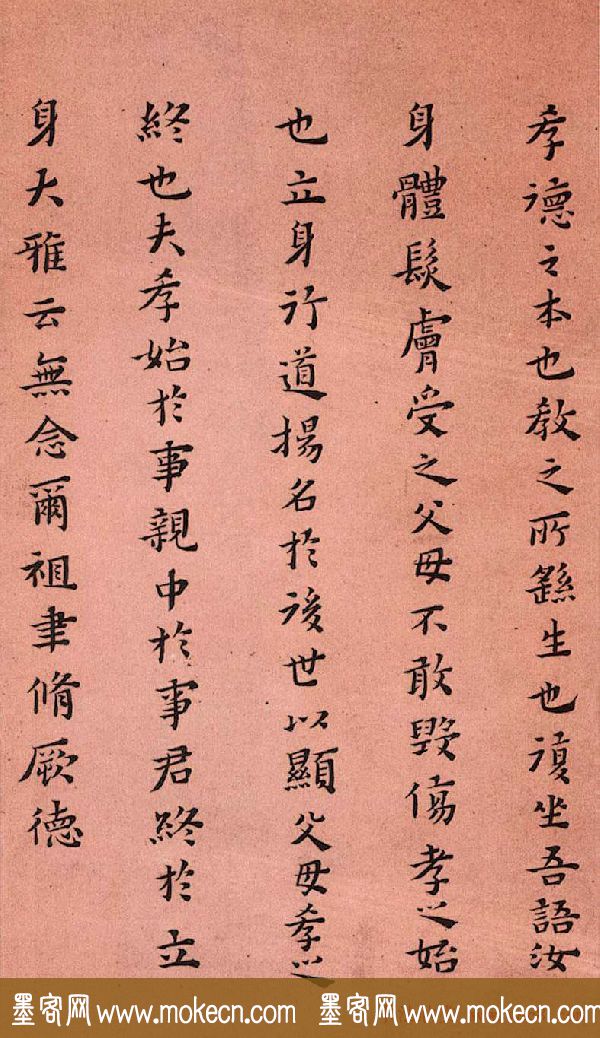 孝德之本也教之所繇生也復坐吾語汝
身體髮膚受之父母不敢毀傷孝之始
也立身行道揚名於後世以顯父母孝之
終也夫孝始於事親中於事君終於立
身大雅云無念爾祖聿脩厥德
墨客网 www.mokecn.com 墨客网 www.mokecn.com